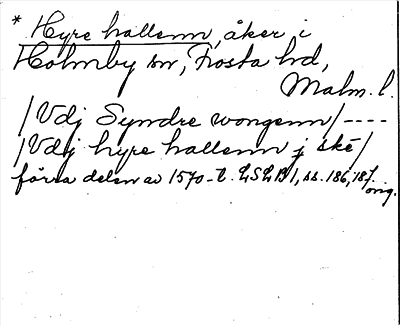 * Hyre hallenn, åker, i
Holmby sn, Frosta hd,
Malm. l.
/Vdj Syndre wongenn/----
/Vdj hyre hallenn j ské/
förra delen av 1570-t. LSLB 1, ss. 186, 187.
orig.